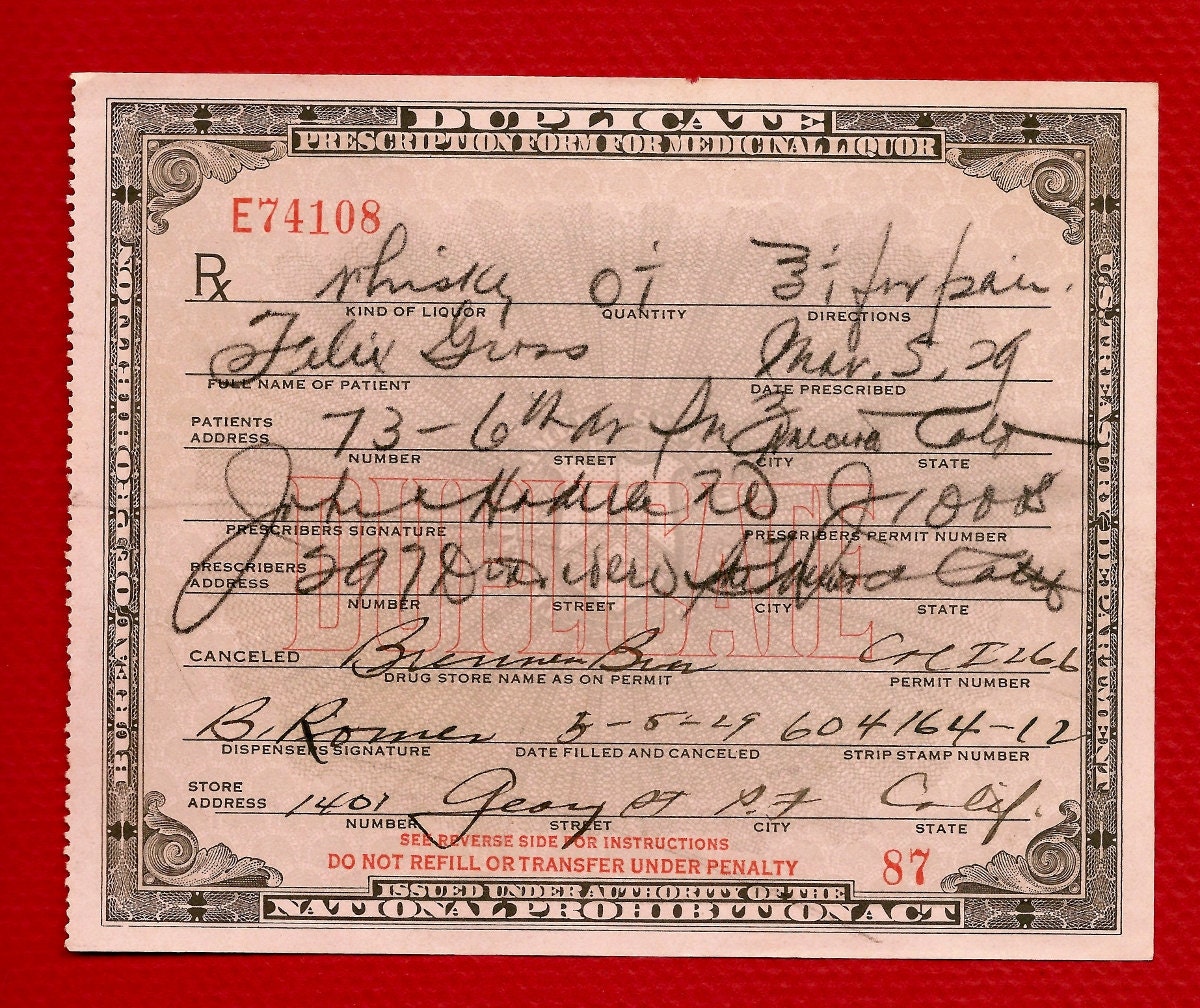 DUPLICATE
PRESCRIPTION FORM FOR MEDICINAL LIQUOR
E74108
Rx whisky OT 3i for pain.
KIND OF LIQUOR QUANTITY DIRECTIONS
Felix Gross Mar. 5, 29
FULL NAME OF PATIENT DATE PRESCRIBED
PATIENTS ADDRESS 73 - 6th
NUMBER STREET CITY STATE
DUPLICATE
John
PRESCRIBERS SIGNATURE PRESCRIBERS PERMIT NUMBER
PRESCRIBERS ADDRESS 297
NUMBER STREET CITY STATE
CANCELED Cal I 266
DRUG STORE NAME AS ON PERMIT PERMIT NUMBER
B. Romer 3-5-29 604164-12
DISPENSERS SIGNATURE DATE FILLED AND CANCELED STRIP STAMP NUMBER
STORE ADDRESS 1401 Geary ST S.F Calif.
NUMBER STREET CITY STATE
SEE REVERSE SIDE FOR INSTRUCTIONS
DO NOT REFILL OR TRANSFER UNDER PENALTY 87
ISSUED UNDER AUTHORITY OF THE
NATIONAL PROHIBITION ACT